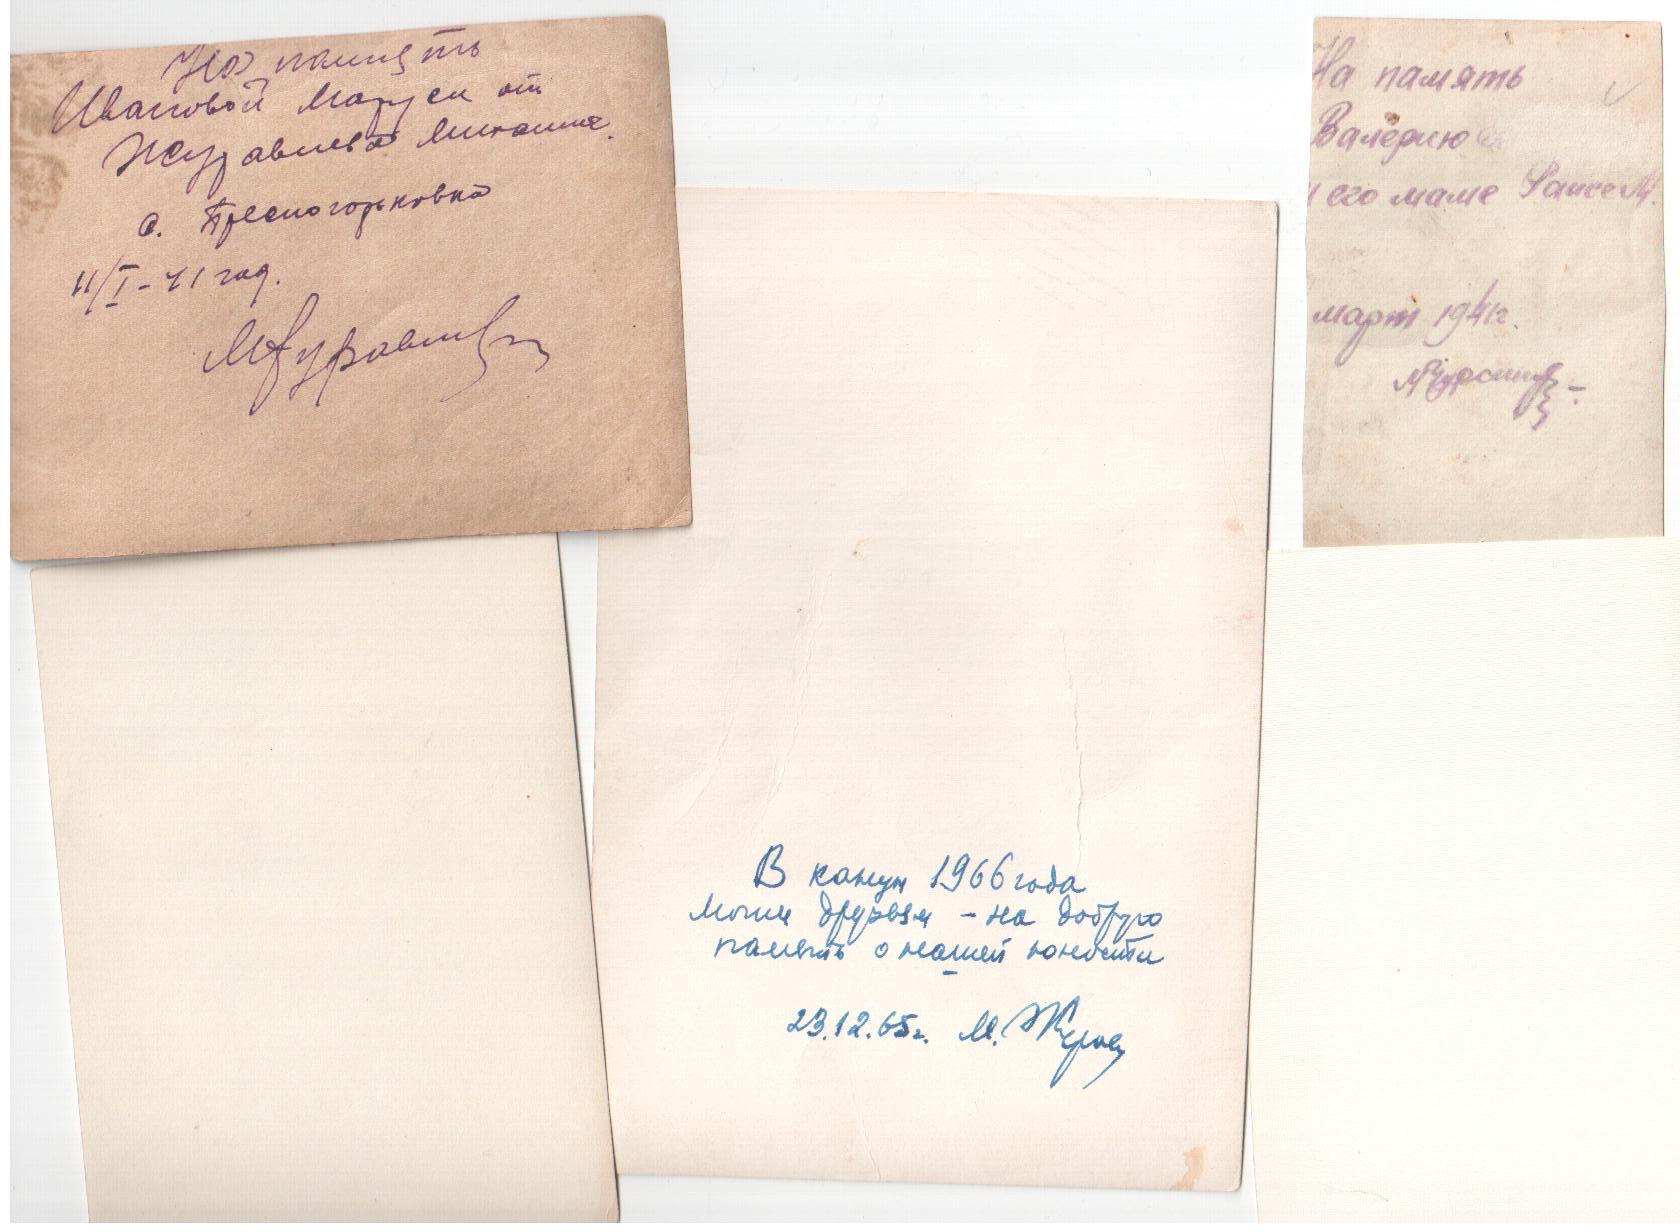 На память
Ивановой Маруси от
Журавлева Михаила.
с. Пресногорьковка
11/I-41 год.
МЖуравлев
На память
Валерию
и его маме Раисе М.
март 1941г.
В канун 1966 года
моим друзьям - на добрую
память о нашей юности
23.12.65г. М. Журав